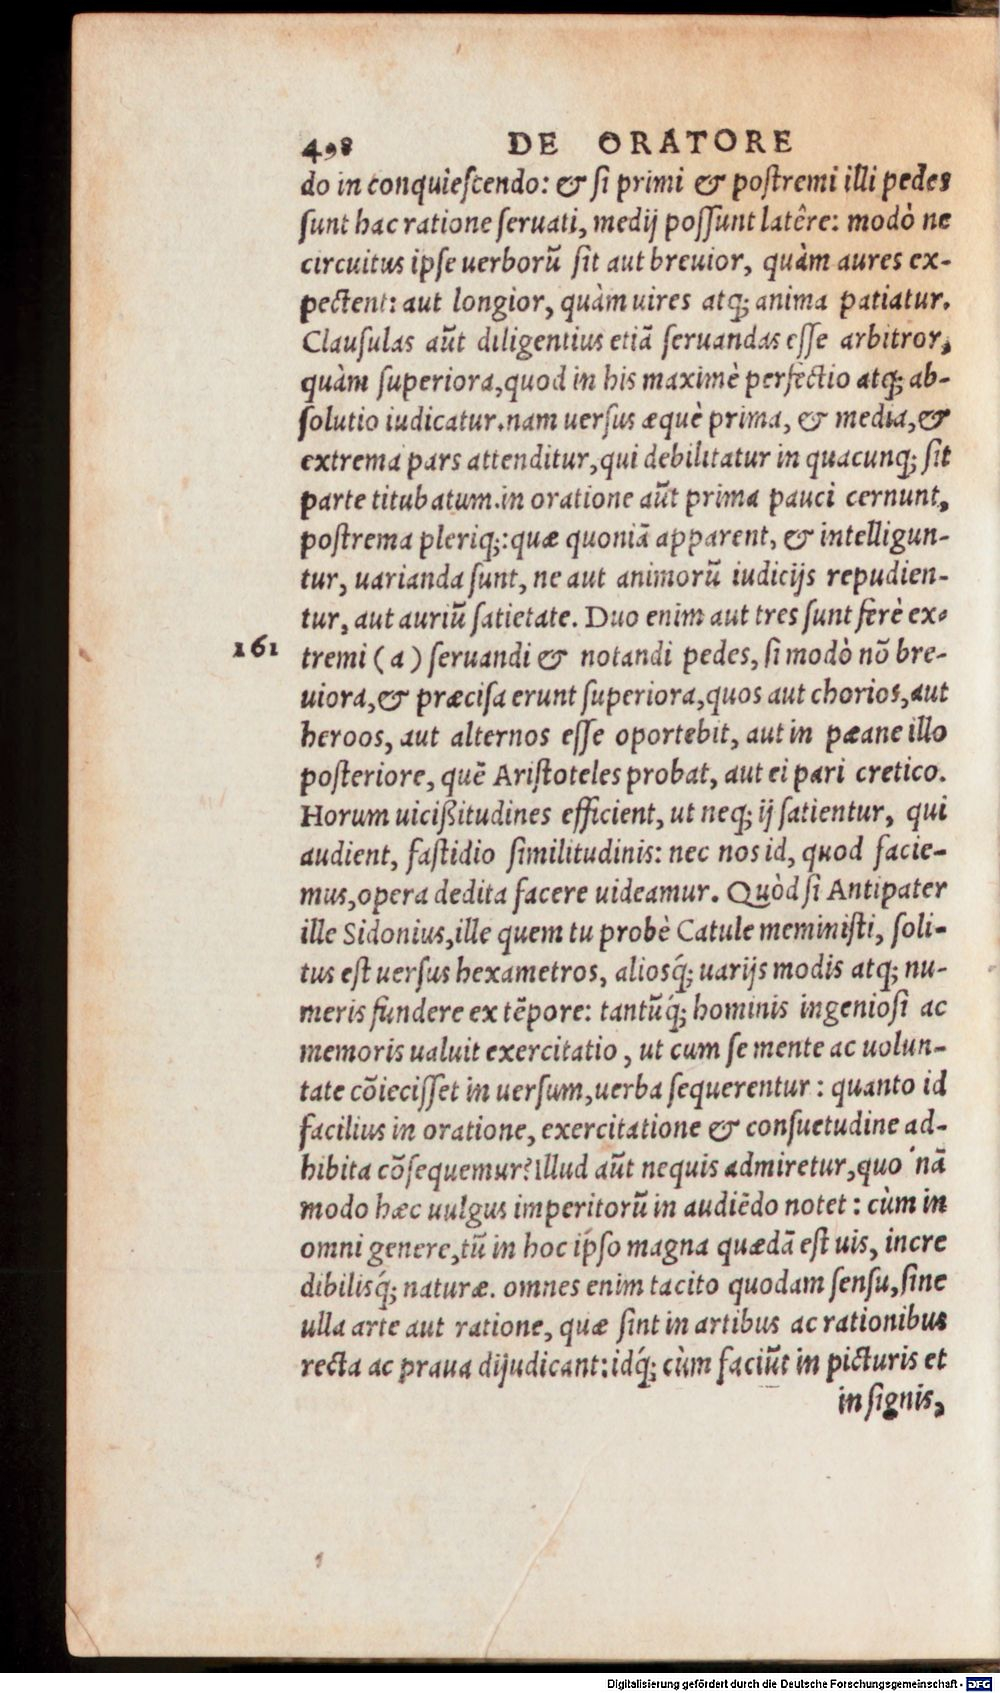 498 DE ORATORE
do in conquiescendo: & si primi & postremi illi pedes
sunt hac ratione seruati, medij possunt latêre: modò ne
circuitus ipse uerborũ sit aut breuior, quàm aures ex-
pectent: aut longior, quàm uires atq; anima patiatur.
Clausulas aũt diligentius etiã seruandas esse arbitror,
quàm superiora, quod in his maximè perfectio atq; ab-
solutio iudicatur. nam uersus æquè prima, & media, &
extrema pars attenditur, qui debilitatur in quacunq; sit
parte titubatum. in oratione aũt prima pauci cernunt,
postrema pleriq;: quæ quoniã apparent, & intelligun-
tur, uarianda sunt, ne aut animorũ iudicijs repudien-
tur, aut auriũ satietate. Duo enim aut tres sunt ferè ex-
161 tremi (a) seruandi & notandi pedes, si modò nõ bre-
uiora, & præcisa erunt superiora, quos aut chorios, aut
heroos, aut alternos esse oportebit, aut in pæane illo
posteriore, quẽ Aristoteles probat, aut ei pari cretico.
Horum uicißitudines efficient, ut neq; ij satientur, qui
audient, fastidio similitudinis: nec nos id, quod facie-
mus, opera dedita facere uideamur. Quòd si Antipater
ille Sidonius, ille quem tu probè Catule meministi, soli-
tus est uersus hexametros, aliosq́; uarijs modis atq; nu-
meris fundere ex tẽpore: tantũq́; hominis ingeniosi ac
memoris ualuit exercitatio, ut cum se mente ac uolun-
tate cõiecisset in uersum, uerba sequerentur: quanto id
facilius in oratione, exercitatione & consuetudine ad-
hibita cõsequemur? Illud aũt nequis admiretur, quo nã
modo hæc uulgus imperitorũ in audiẽdo notet: cùm in
omni genere, tũ in hoc ipso magna quædã est uis, incre
dibilisq́; naturæ. omnes enim tacito quodam sensu, sine
ulla arte aut ratione, quæ sint in artibus ac rationibus
recta ac praua dijudicant: idq́; cùm faciũt in picturis et
in signis,
Digitalisierung gefördert durch die Deutsche Forschungsgemeinschaft - DFG